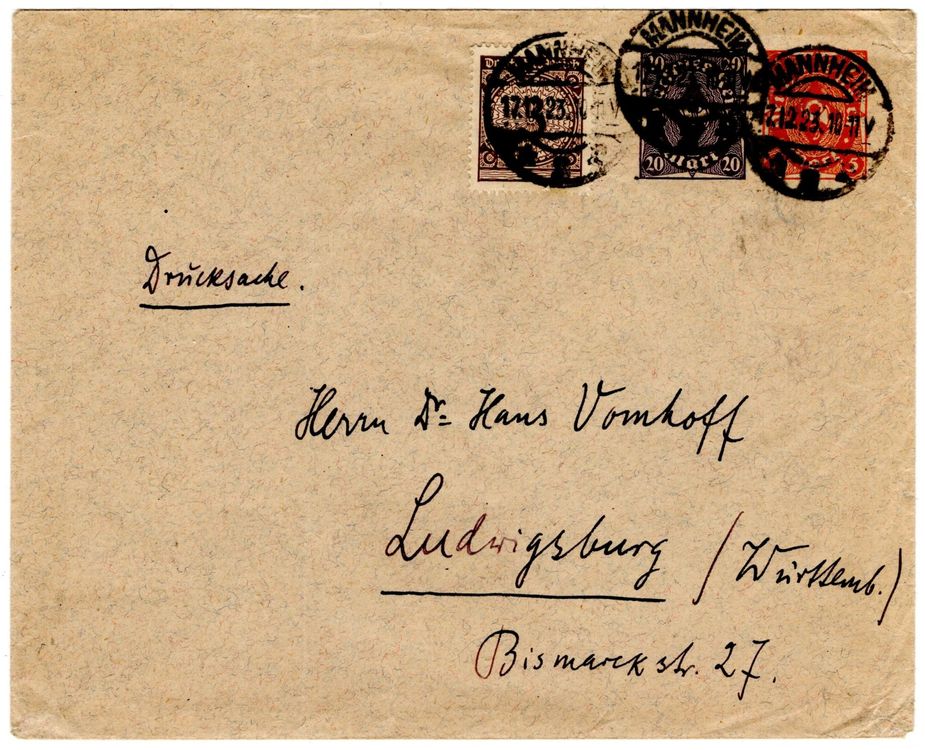 MANNHEIM
17.12.23.
MANNHEIM
20 20
20 20
MANNHEIM
17.12.23. 10-11 V
5
Drucksache.
Herrn Dr Hans Vomhoff
Ludwigsburg (Württemb.)
Bismarckstr. 27.